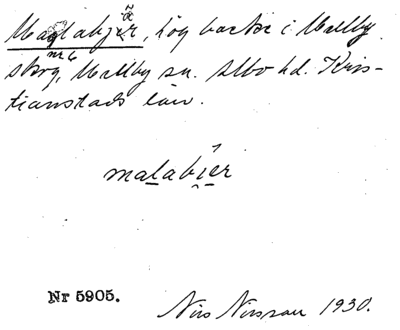 Maglabjär, hög backe i Mellby
nr 6
skog, Mellby sn. Albo hd. Kris-
tianstads län.
malabier
Nr 5905.
Nils Nilsson 1930.